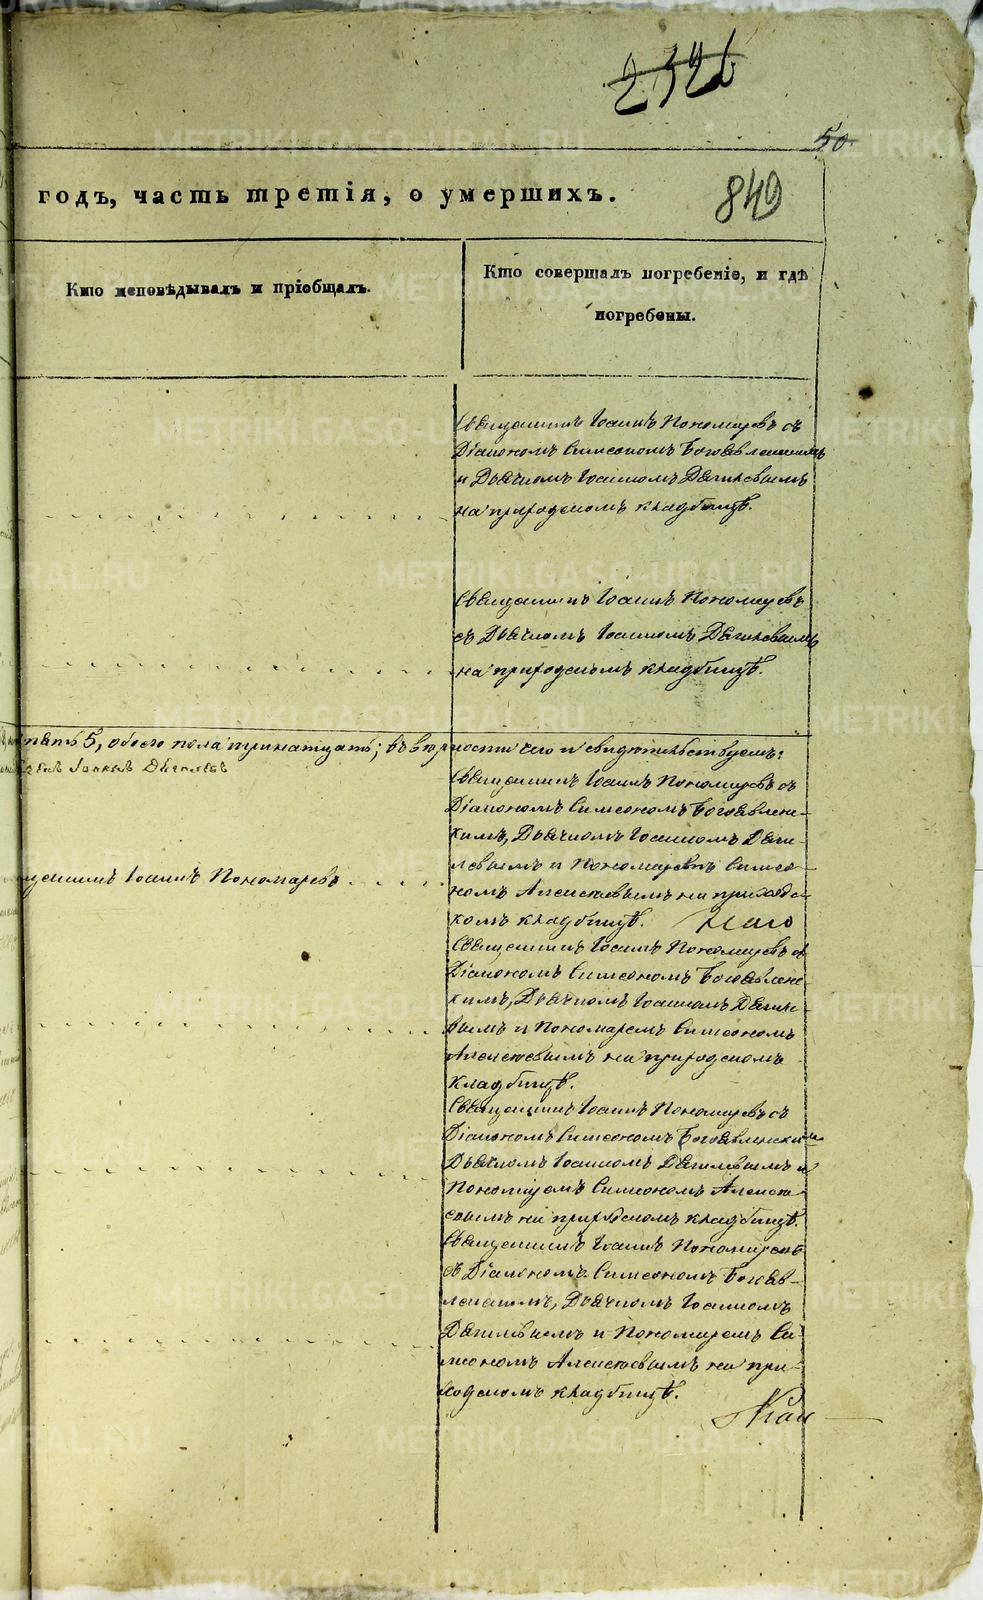 50
849
годъ, часть третія, о умершихъ.
Кто исповѣдывалъ и пріобщалъ.
Кто совершалъ погребеніе, и гдѣ
погребены.
Священникъ Іоаннъ Пономаревъ съ
Діакономъ Симеономъ Богоявленскимъ
и Дьячкомъ Іоанномъ Дягилевымъ
на приходскомъ кладбищѣ.
Священникъ Іоаннъ Пономаревъ
съ Дьячкомъ Іоанномъ Дягилевымъ
на приходскомъ кладбищѣ.
пять 5, обоего пола тринатцать; въ вѣрности чего и свидѣтельствуемъ:
Іоаннъ Дягилевъ
Священникъ Іоаннъ Пономаревъ съ
Діакономъ Симеономъ Богоявленс-
кимъ, Дьячкомъ Іоанномъ Дяги-
левымъ и Пономаремъ Симео-
щенникъ Іоаннъ Пономаревъ
номъ Алексѣевымъ на приходс-
комъ кладбищѣ.
Священникъ Іоаннъ Пономаревъ съ
Діакономъ Симеономъ Богоявленс-
кимъ, Дьячкомъ Іоанномъ Дягиле-
вымъ и Пономаремъ Симеономъ
Алексѣевымъ на приходскомъ
кладбищѣ.
Священникъ Іоаннъ Пономаревъ съ
Діакономъ Симеономъ Богоявленскимъ
Дьячкомъ Іоанномъ Дягилевымъ и
Пономаремъ Симеономъ Алексѣ-
евымъ на приходскомъ кладбищѣ.
Священникъ Іоаннъ Пономаревъ
съ Діакономъ Симеономъ Богояв-
ленскимъ, Дьячкомъ Іоанномъ
Дягилевымъ и Пономаремъ Си-
меономъ Алексѣевымъ на при-
ходскомъ кладбищѣ.
METRIKI.GASO-URAL.RU